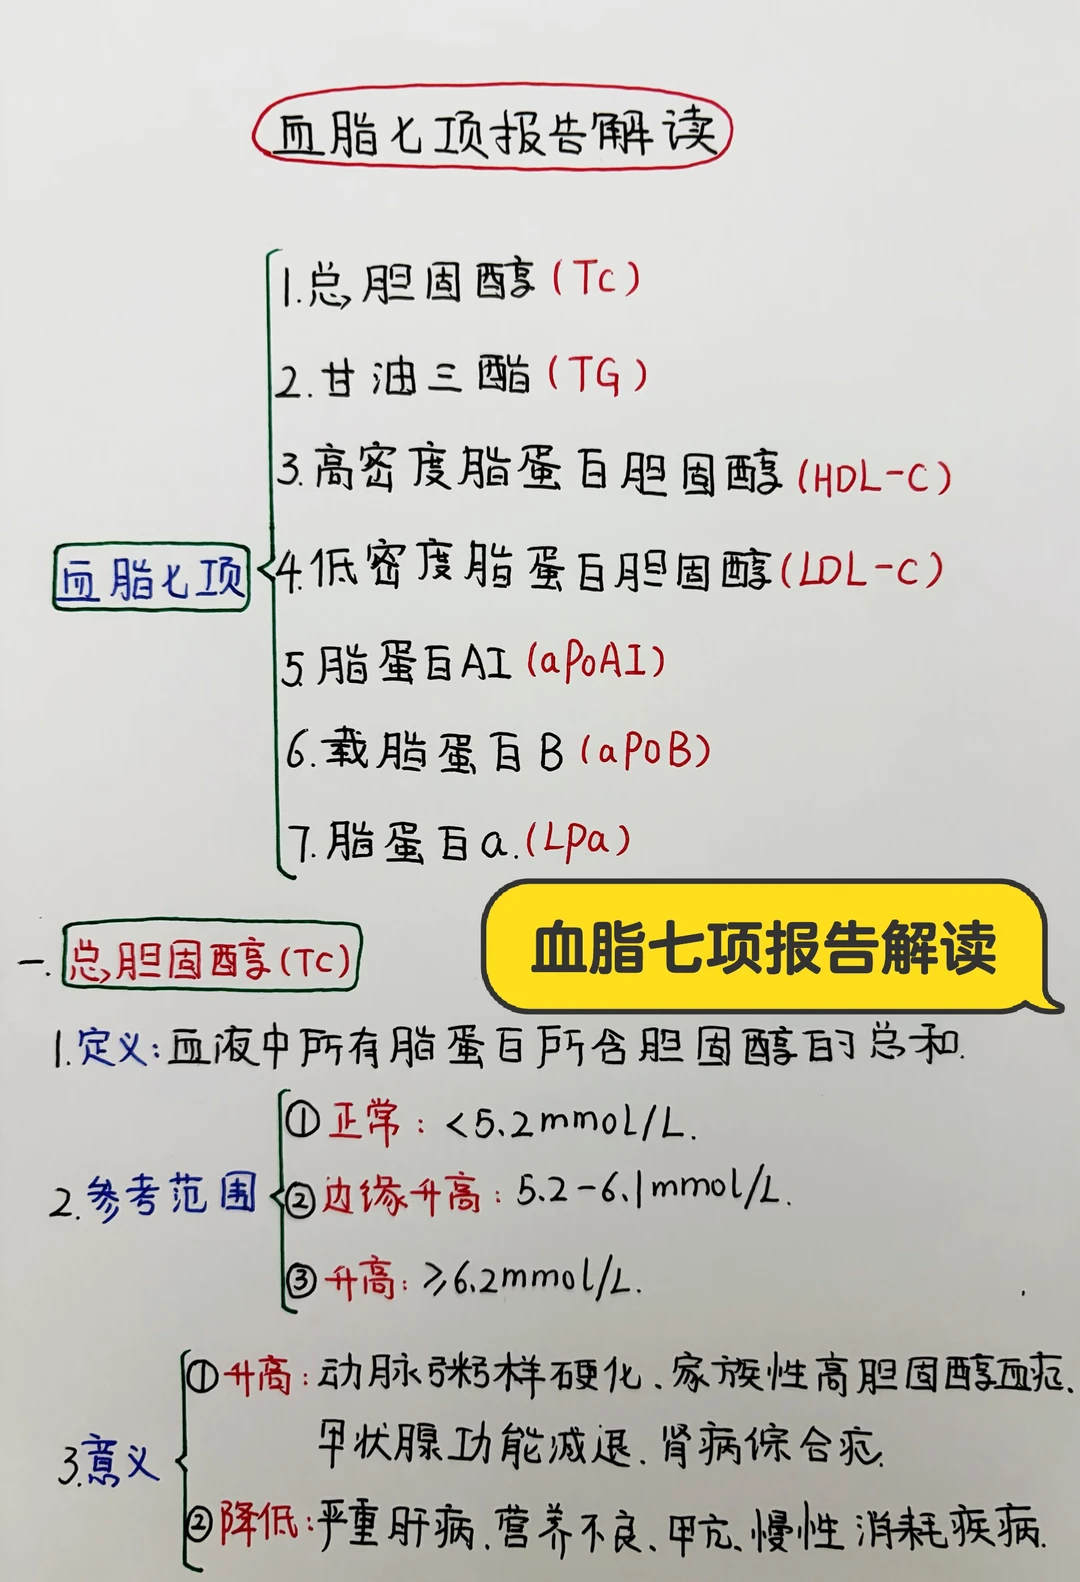 血脂七项报告解读
血脂七项
1.总胆固醇(TC)
2.甘油三酯(TG)
3.高密度脂蛋白胆固醇(HDL-C)
4.低密度脂蛋白胆固醇(LDL-C)
5.脂蛋白AI(aPoAI)
6.载脂蛋白B(aPOB)
7.脂蛋白a.(LPa)
血脂七项报告解读
一.总胆固醇(TC)
1.定义:血液中所有脂蛋白所含胆固醇的总和.
2.参考范围
①正常:<5.2mmol/L.
②边缘升高:5.2-6.1mmol/L.
③升高:≥6.2mmol/L.
3.意义
①升高:动脉粥样硬化、家族性高胆固醇血症、
甲状腺功能减退、肾病综合症.
②降低:严重肝病、营养不良、甲亢、慢性消耗疾病.